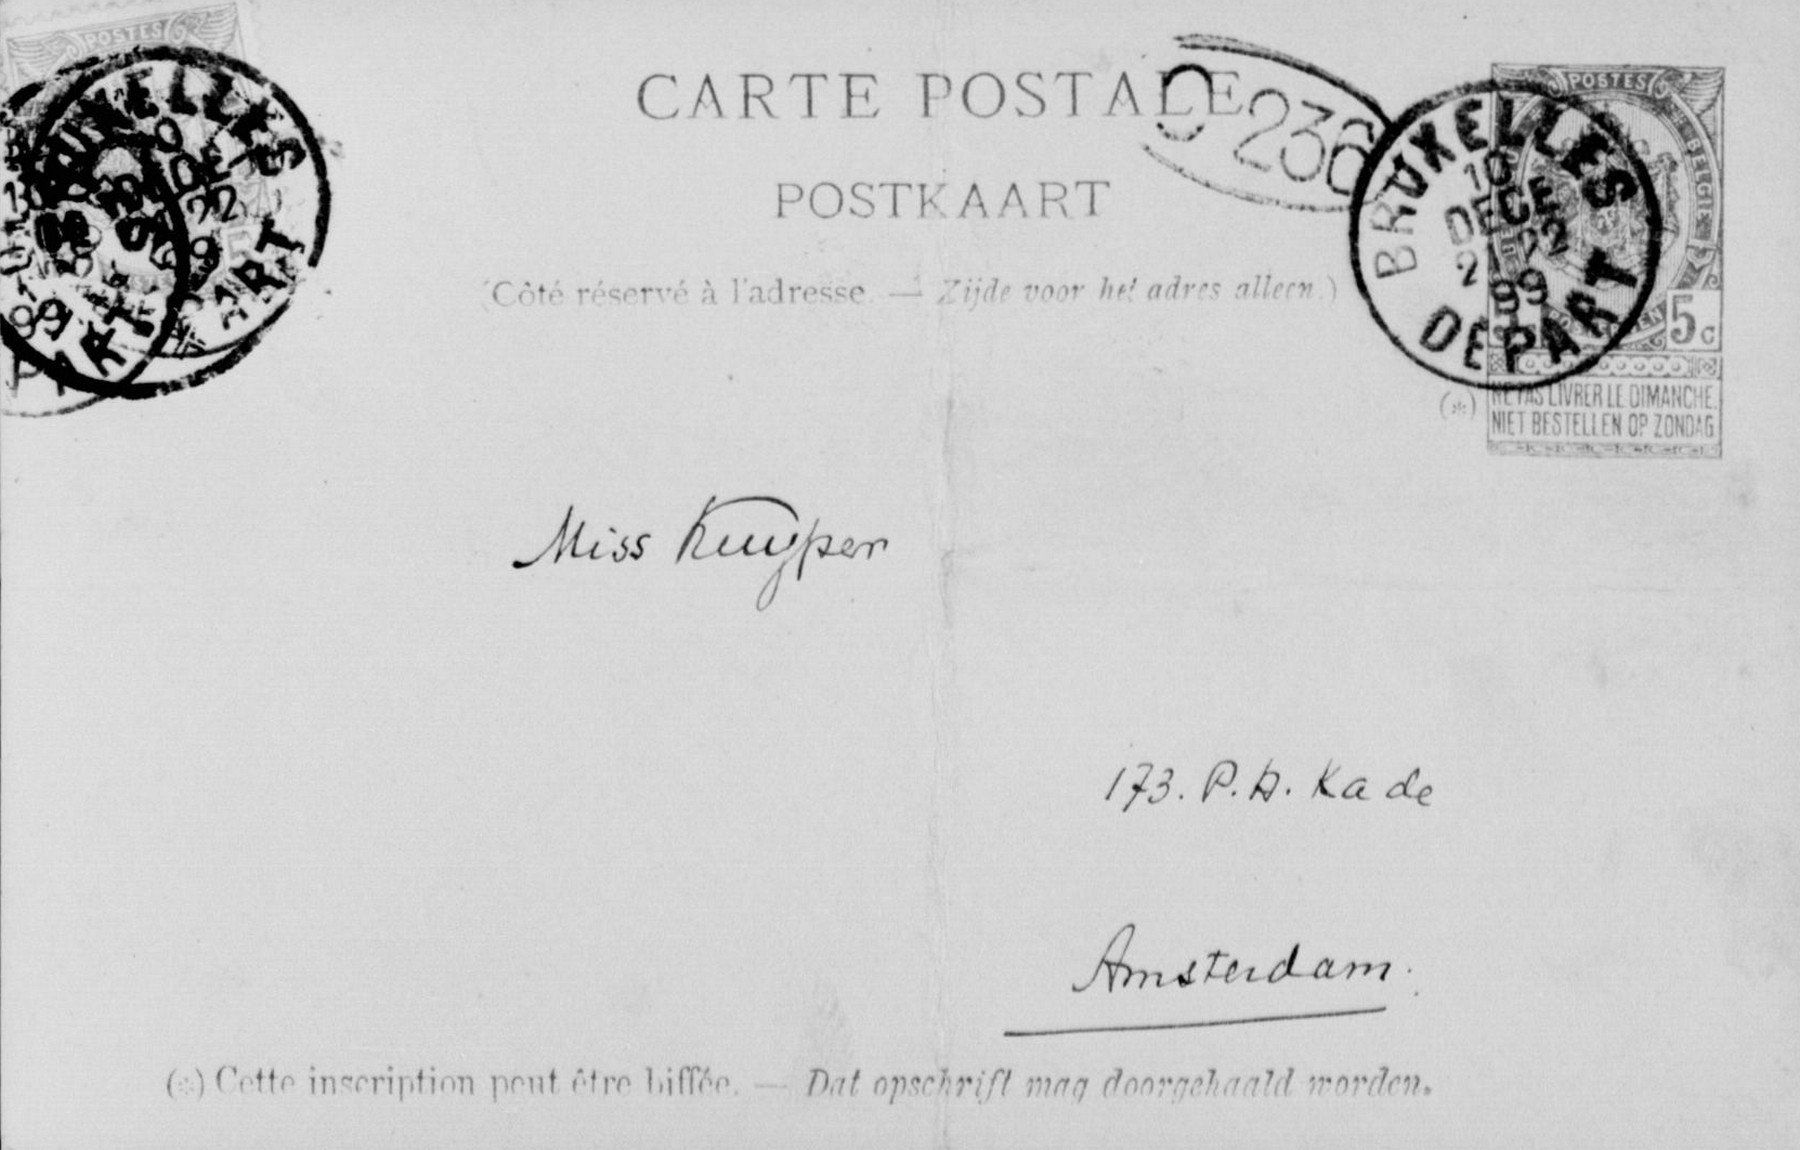 POSTES
BRUXELLES
DEPART
99
CARTE POSTALE
POSTKAART
(Côté réservé à l'adresse. — Zijde voor het adres alleen.)
O 236
BRUXELLES
10
DECE
22
99
DEPART
POSTES
5c
(*)
NE PAS LIVRER LE DIMANCHE.
NIET BESTELLEN OP ZONDAG
Miss Kuyper
173. P. H. Kade
Amsterdam.
(*) Cette inscription peut être biffée. — Dat opschrift mag doorgehaald worden.